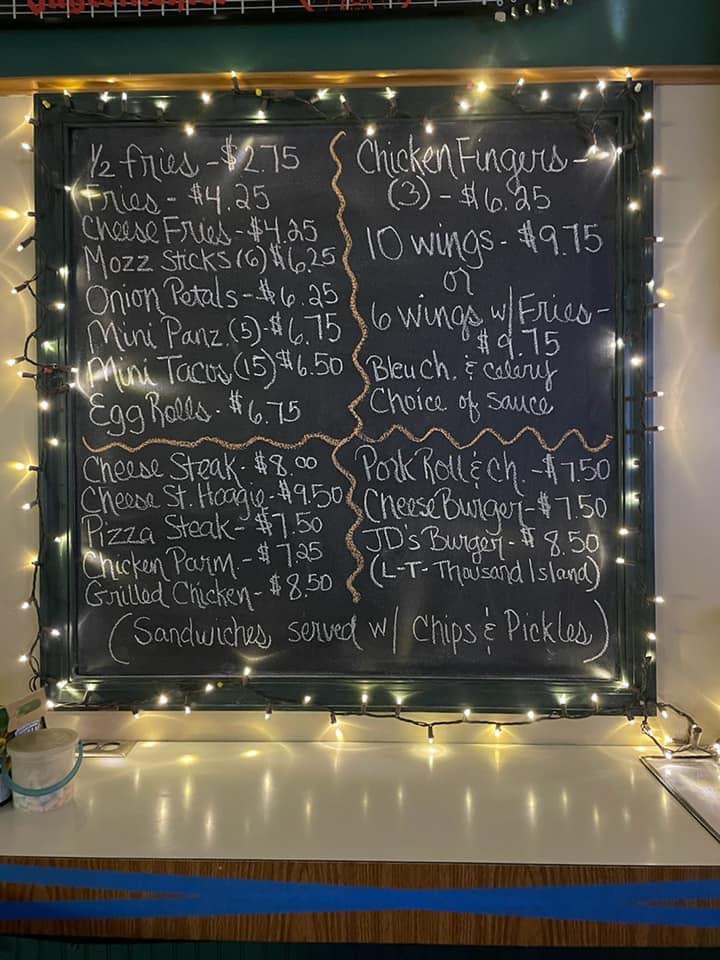 1/2 fries - $2.75
Fries - $4.25
Cheese Fries - $4.25
Mozz Sticks (6) $6.25
Onion Petals - $6.25
Mini Panz. (5) - $6.75
Mini Tacos (15) $6.50
Egg Rolls - $6.75
Chicken Fingers -
(3) - $6.25
10 wings - $9.75
or
6 wings w/ Fries -
$9.75
Bleu ch. & celery
Choice of sauce
Cheese Steak - $8.00
Cheese St. Hoagie - $9.50
Pizza Steak - $7.50
Chicken Parm. - $7.25
Grilled Chicken - $8.50
Pork Roll & ch. - $7.50
Cheese Burger - $7.50
JD's Burger - $8.50
(L-T-Thousand Island)
(Sandwiches served w/ Chips & Pickles)